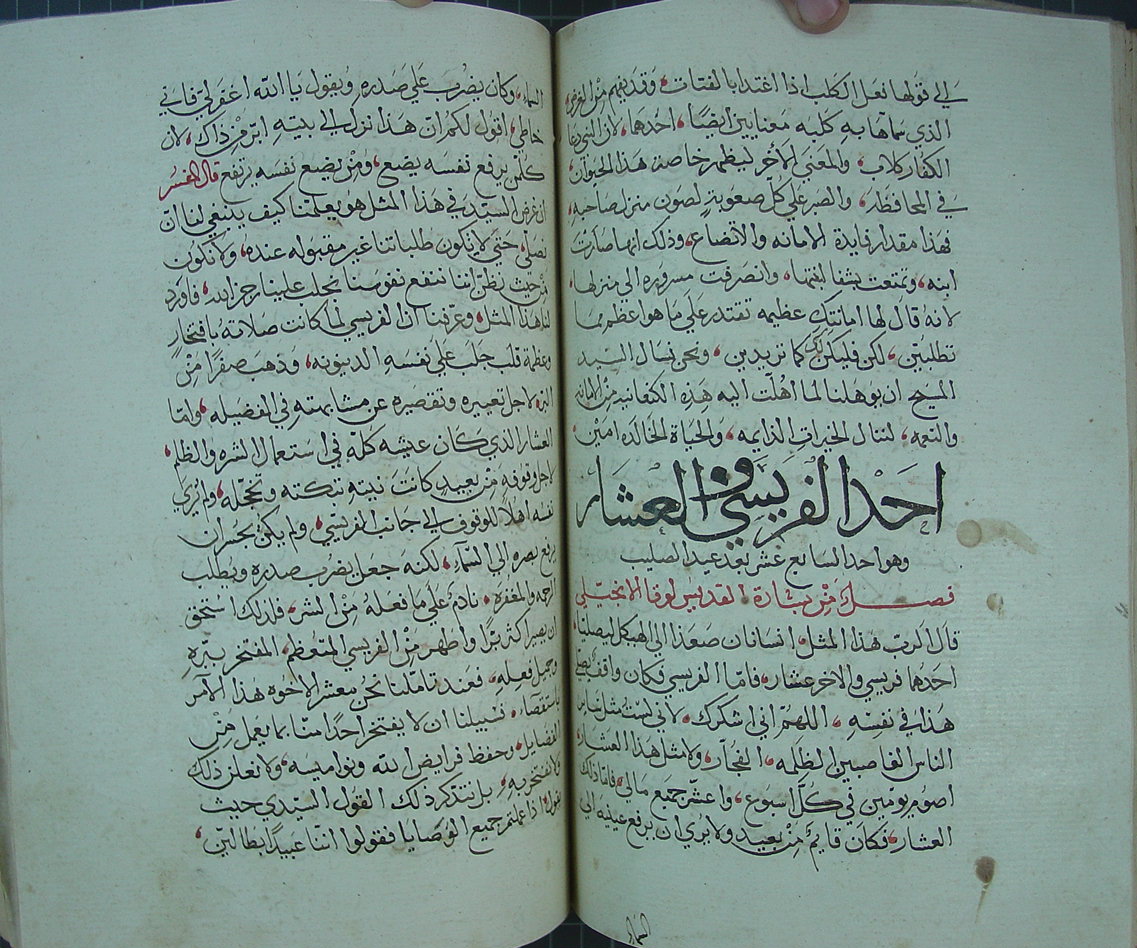 في قولها نعل الكلب اذا اغتدا بالفتات، وقد يفهم من الغرض
الذي سماها به كلبه معنايين ايضًا، احدها، لان النبي دعا
الكفار كلاب، والمعنى الآخر ليظهر خاصة هذا الحيوان
في المحافظه، والصبر علي كل صعوبةٍ لصون منزل صاحبه،
فهذا مقدار فايدة الامانه والاتضاع، وذلك انها صارت
ابنه، وتمتعت بشفا ابنتها، وانصرفت مسروره الى منزلها،
لانه قال لها امانتك عظيمه تقتدر علي ما هو اعظم مما
تطلبين، لكن فليكن لك كما تريدين، ونحن نسال السيد
المسيح ان يوهلنا لما اهلت اليه هذه الكنعانيه من الامانه
والنعمه، لننال الخيرات الدايمه، والحياة الخالده امين،
احد الفريسي والعشار
وهو احد السابع عشر بعد عيد الصليب
فصل من بشارة القديس لوقا الانجيلي
قال الرب هذا المثل، انسانان صعدا الى الهيكل ليصليا،
احدهما فريسي والاخر عشار، فامّا الفريسي فكان واقفًا يصلي
هذا في نفسه، اللهم اني اشكرك، لاني لست مثل ساير
الناس الغاصبين الظلمه، الفجار، ولا مثل هذا العشار،
اصوم يومين في كل اسبوع، واعشر جميع مالي، فامّا ذلك
العشار، فكان قايم من بعيد ولا يرى ان يرفع عينيه الى
السماء
السماء، وكان يضرب علي صدره ويقول يا الله اغفر لي فاني
خاطي، اقول لكم ان هذا نزل الى بيته ابر من ذاك، لان
كل من يرفع نفسه يضع، ومن يضع نفسه يرتفع قال المفسر
ان غرض السيد في هذا المثل هو يعلمنا كيف ينبغي لنا ان
نصلي، حتى لا يكون طلباتنا غير مقبوله عنده، ولا نكون
من حيث نظن اننا ننفع نفوسنا نجلب علينا رجز الله، فاورد
لنا هذا المثل، وعرفنا ان الفريسي لما كانت صلاته بافتخار
وعظمة قلب جلب علي نفسه الدينونه، وذهب صفرًا من
البر، لاجل تعييره وتقصيره عن مشابهته في الفضيله، وامّا
العشار الذي كان عيشه كله في استعمال الشره والظلم،
لاجل وقوفه من بعيد كانت نيته تنكته وتخجله، ولم يرى
نفسه اهلًا للوقوف الى جانب الفريسي، ولم يكن يجسر ان
يرفع بصره الي السماء، لكنه جعل يضرب صدره ويطلب
الرحمه والمغفره، نادم علي ما فعله من الشر، فلذلك استحق
ان يصير اكثر برًا واطهر من الفريسي المتعظم، المفتخر ببره
وجميل فعله، فعند تاملنا نحن معشر الاخوه هذا الامر
باستقصاء، فسبيلنا ان لا يفتخر احدًا منّا بما يعمل من
الفضايل، وحفظ فرايض الله ونواميسه، ولا نعلن ذلك
ولا نفتخر به، بل نتذكر ذلك القول السيّدي حيث
يقول، اذا عملتم جميع الوصايا فقولوا اننا عبيدًا بطالين،